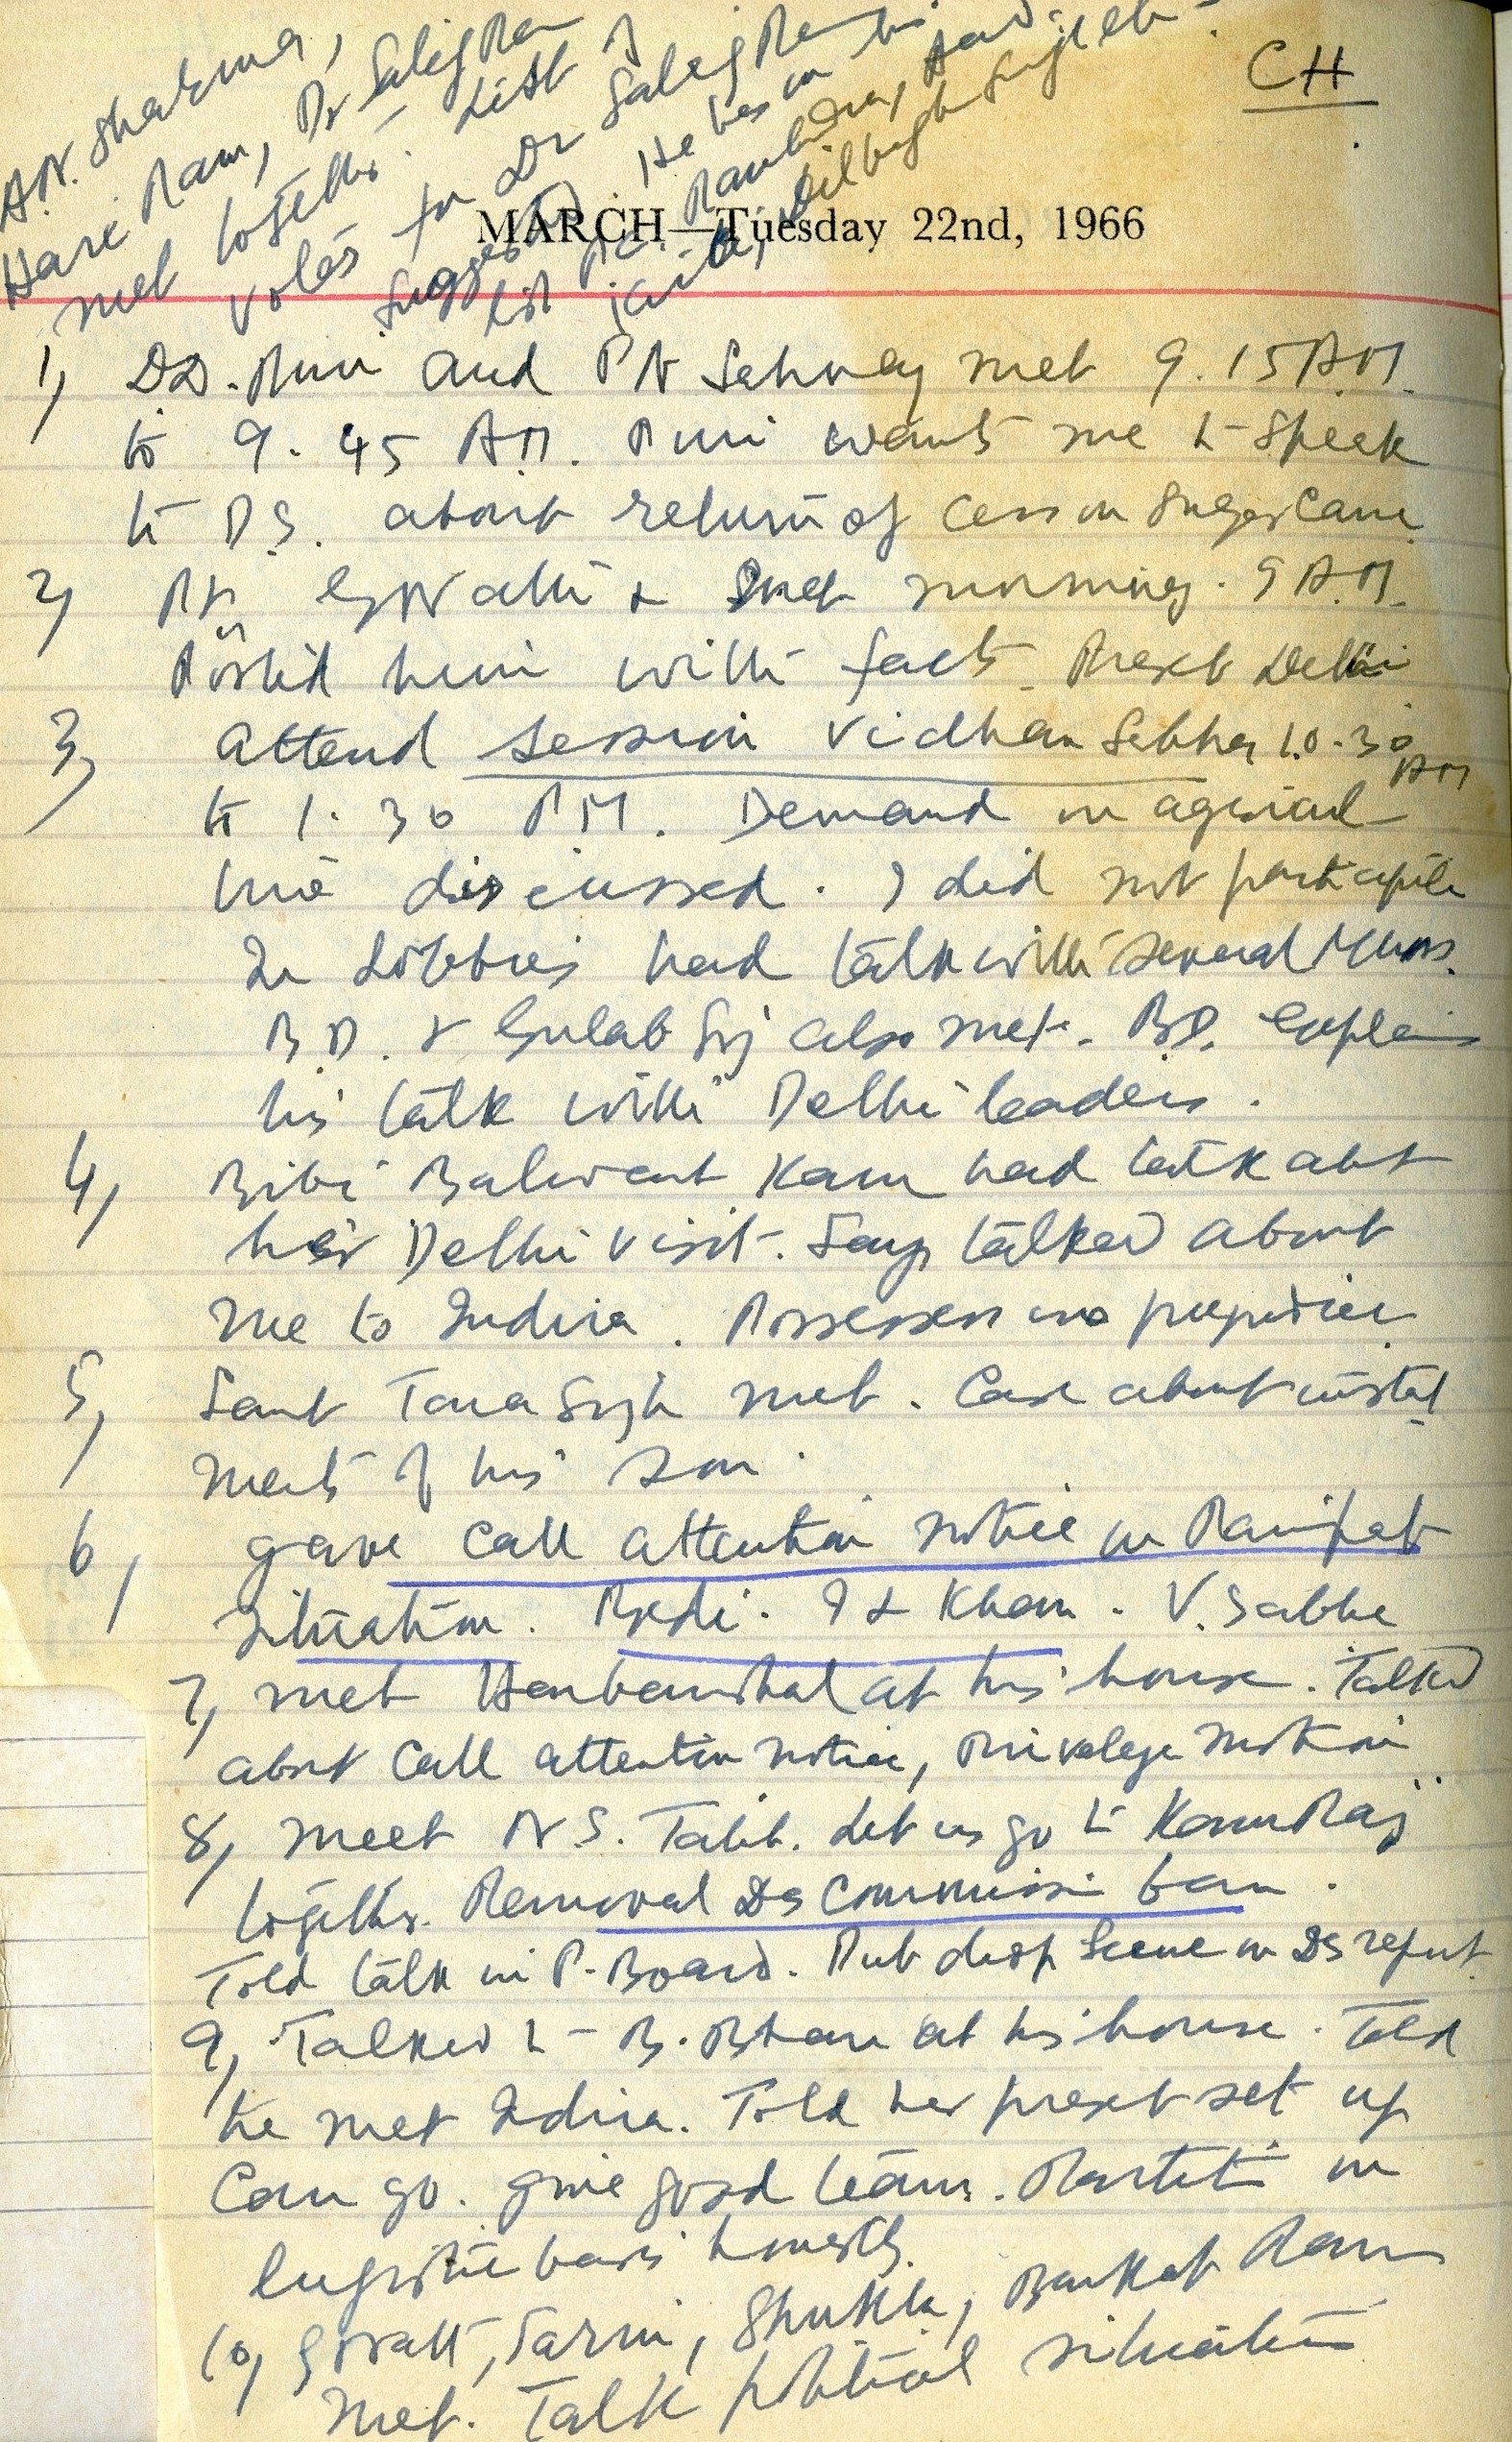 CH
A.N. Sharma,
Hari Ram, Dr Salig Ram
met together. List of
votes for Dr Salig Ram
suggested. He has in his
list
MARCH—Tuesday 22nd, 1966
1) D.D. Puri and P N Sahney met 9.15 A.M.
to 9.45 A.M. Puri wants me to speak
to D.S. about return of cess on Sugar Cane
2) Pt. G N Atth & met morning. 9 A.M.
Posted him with facts. Delhi
3) attend session Vidhan Sabha 10.30 AM
to 1.30 P.M. Demand on agricul
ture discussed. I did not participate
In Lobbies had talk with several
B.D. & Gulab Sij also met. B.D. explains
his talk with Delhi leaders.
4) Bibi Balwant Kaur had talk abt
her Delhi visit. Says talked about
me to Indira. Possesses no properties
5) Sant Tara Singh met. Case about instal
ments of his son.
6) gave call attention notice on Panipat
Situation. Bedi. I & Khan. V. Sabha
7) met Harbanslal at his house. Talked
about call attention notice, privelege motion
8) meet N S. Talib. Let us go to KamRaj
together. Removal Das Commission ban.
Told talk in P. Board. Put drop scene on DS report
9) Talked to B. Bhan at his house. Told
he met Indira. Told her present set up
can go. give good team. Partition on
linguistic basis honestly.
10) Sarin, Shukla, Barkat Ram
met. Talk political situation